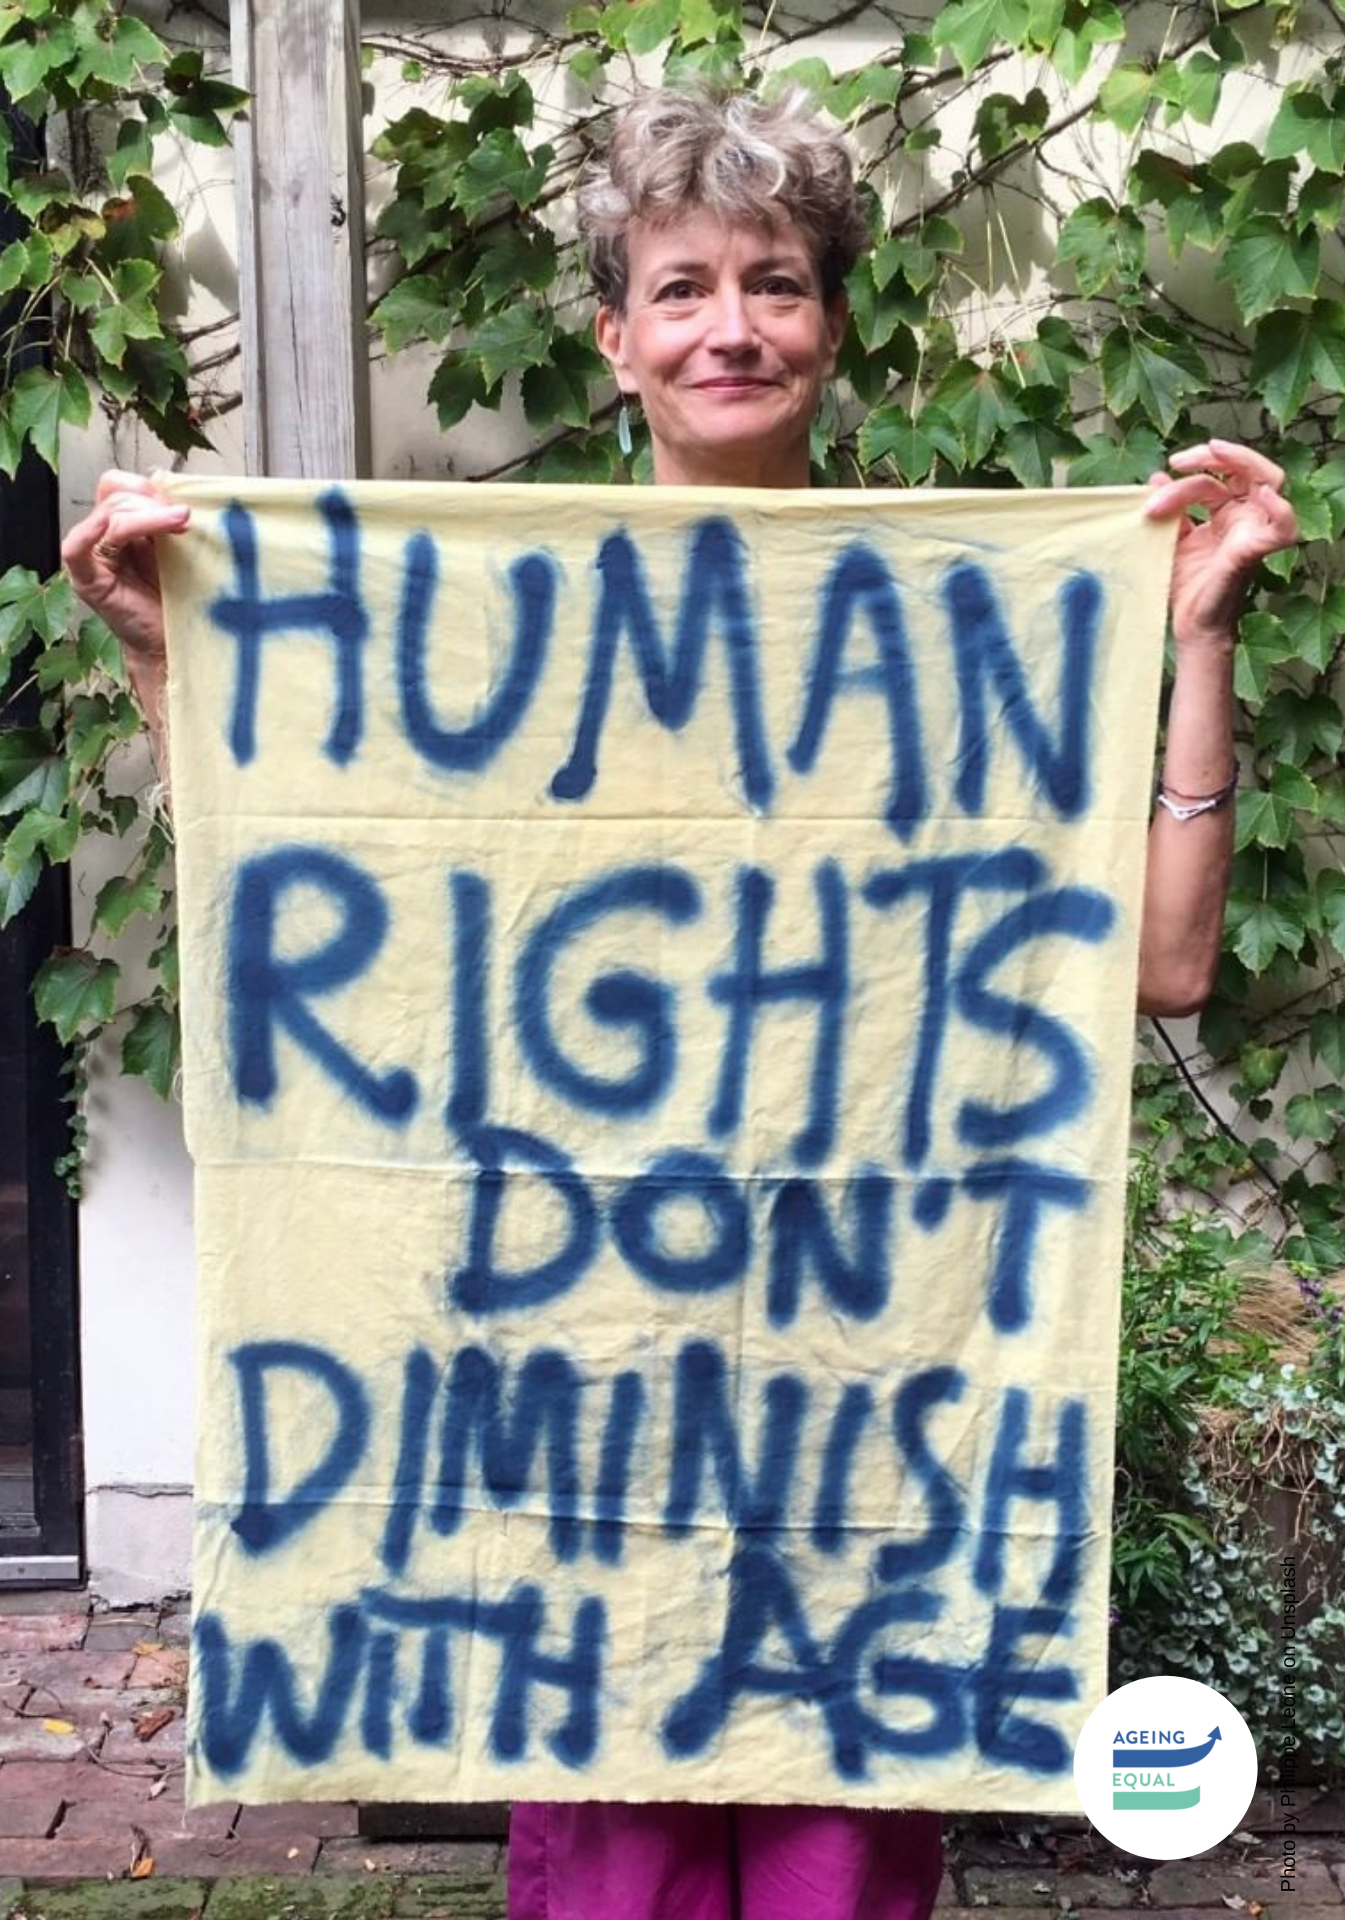 HUMAN
RIGHTS
DON'T
DIMINISH
WITH AGE
AGEING
EQUAL
Photo by Philippe Leone on Unsplash